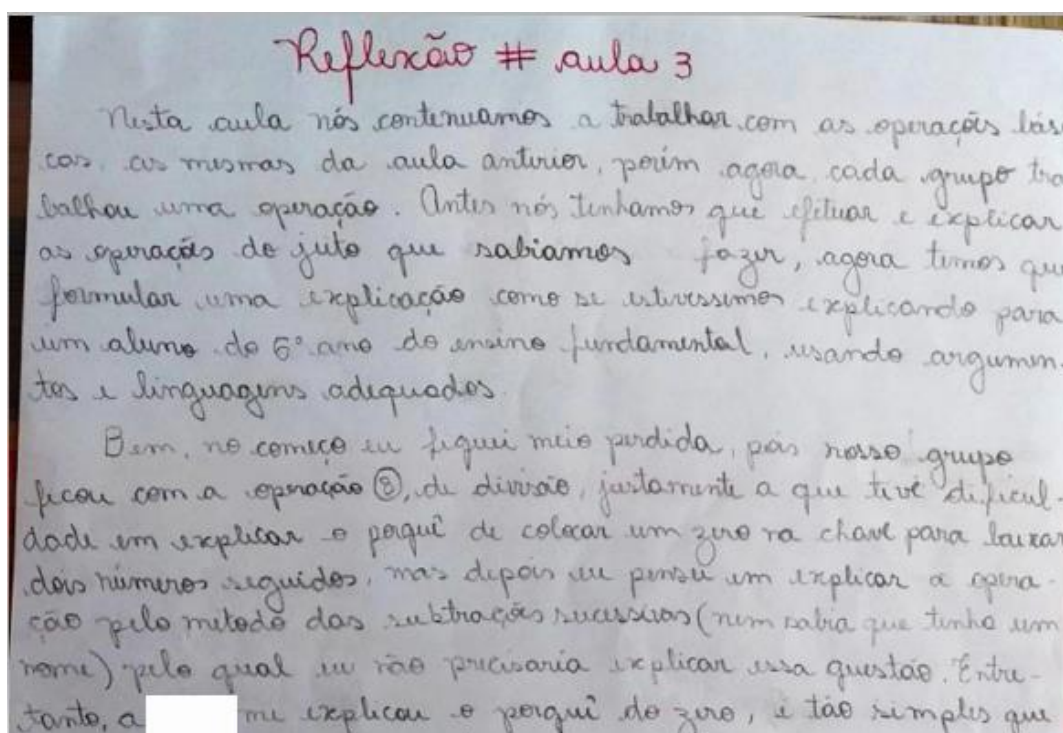 Reflexão # aula 3
Nesta aula nós continuamos a trabalhar com as operações bási
cas, as mesmas da aula anterior, porém agora cada grupo tra
balhou uma operação. Antes nós tenhamos que efetuar e explicar
as operações do juto que sabiamos fazer, agora temos que
formular uma explicação como se estivessimos explicando para
um aluno do 6º ano do ensino fundamental, usando argumen-
tos e linguagens adequados.
Bem, no começo eu fiquei meio perdida, pois nosso grupo
ficou com a operação ⑧, de divisão, justamente a que tive dificul-
dade em explicar o porquê de colocar um zero na chave para baixar
dois números seguidos, mas depois eu pensei em explicar a opera-
ção pelo metodo das subtrações sucessivas (nem sabia que tinha um
nome) pelo qual eu não precisaria explicar essa questão. Entre-
tanto, a me explicou o porquê do zero, é tão simples que